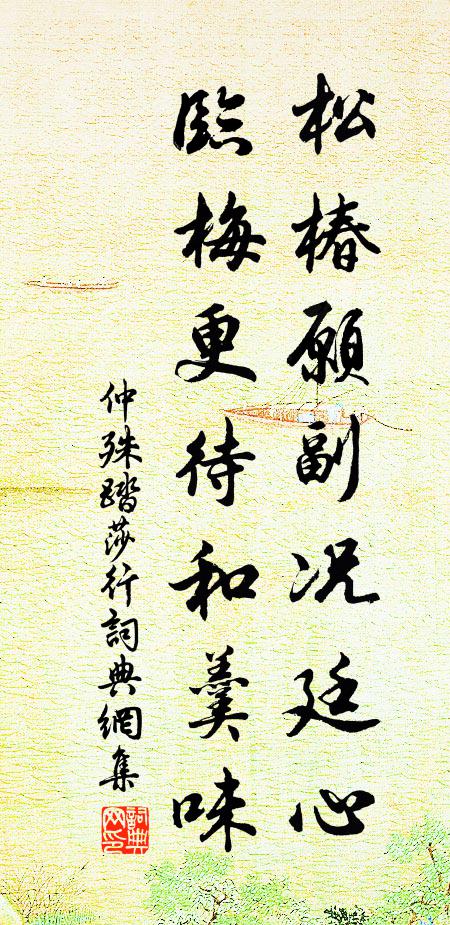 松椿願副况廷心
臨梅更待和羹味
仲殊踏莎行詞典網集
詞典网印